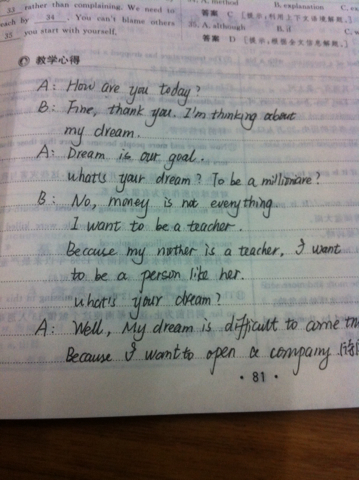 33 rather than complaining. We need to
each by 34 . You can't blame others
35 you start with yourself.
A. method B. explanation
答案 C [提示:利用上下文语境解题。]
35. A. although B. if
答案 D [提示:根据全文信息解题。]
教学心得
A: How are you today?
B: Fine, thank you. I'm thinking about
my dream.
A: Dream is our goal.
what's your dream? To be a millionare?
B: No, money is not everything.
I want to be a teacher.
Because my mother is a teacher, I want
to be a person like her.
what's your dream?
A: Well, My dream is difficult to come
Because I want to open a company
· 81 ·